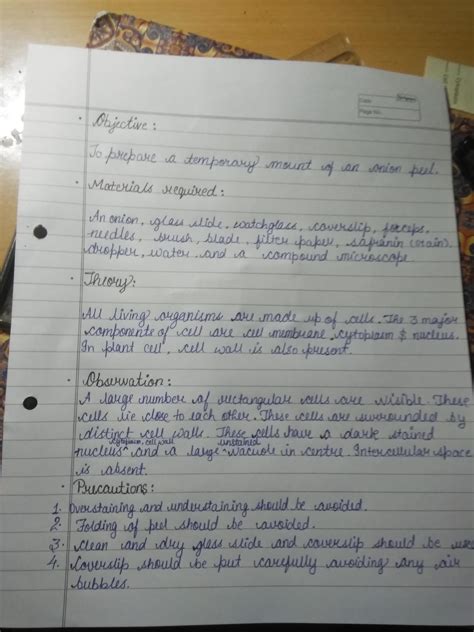 Date
Page No.
• Objective :
To prepare a temporary mount of an onion peel.
• Materials required :
An onion, glass slide, watchglass, coverslip, forceps,
needles, brush, blade, filter paper, safranin (stain),
dropper, water and a compound microscope
• Theory :
All living organisms are made up of cells. The 3 major
components of cell are cell membrane, cytoplasm & nucleus.
In plant cell, cell wall is also present.
• Observation :
A large number of rectangular cells are visible. These
cells lie close to each other. These cells are surrounded by
distinct cell walls. These cells have a dark stained
cytoplasm, cell wall unstained
nucleus and a large vacuole in centre. Intercellular space
is absent.
• Precautions :
1. Overstaining and understaining should be avoided.
2. Folding of peel should be avoided.
3. Clean and dry glass slide and coverslip should be
4. Coverslip should be put carefully avoiding any air
bubbles.